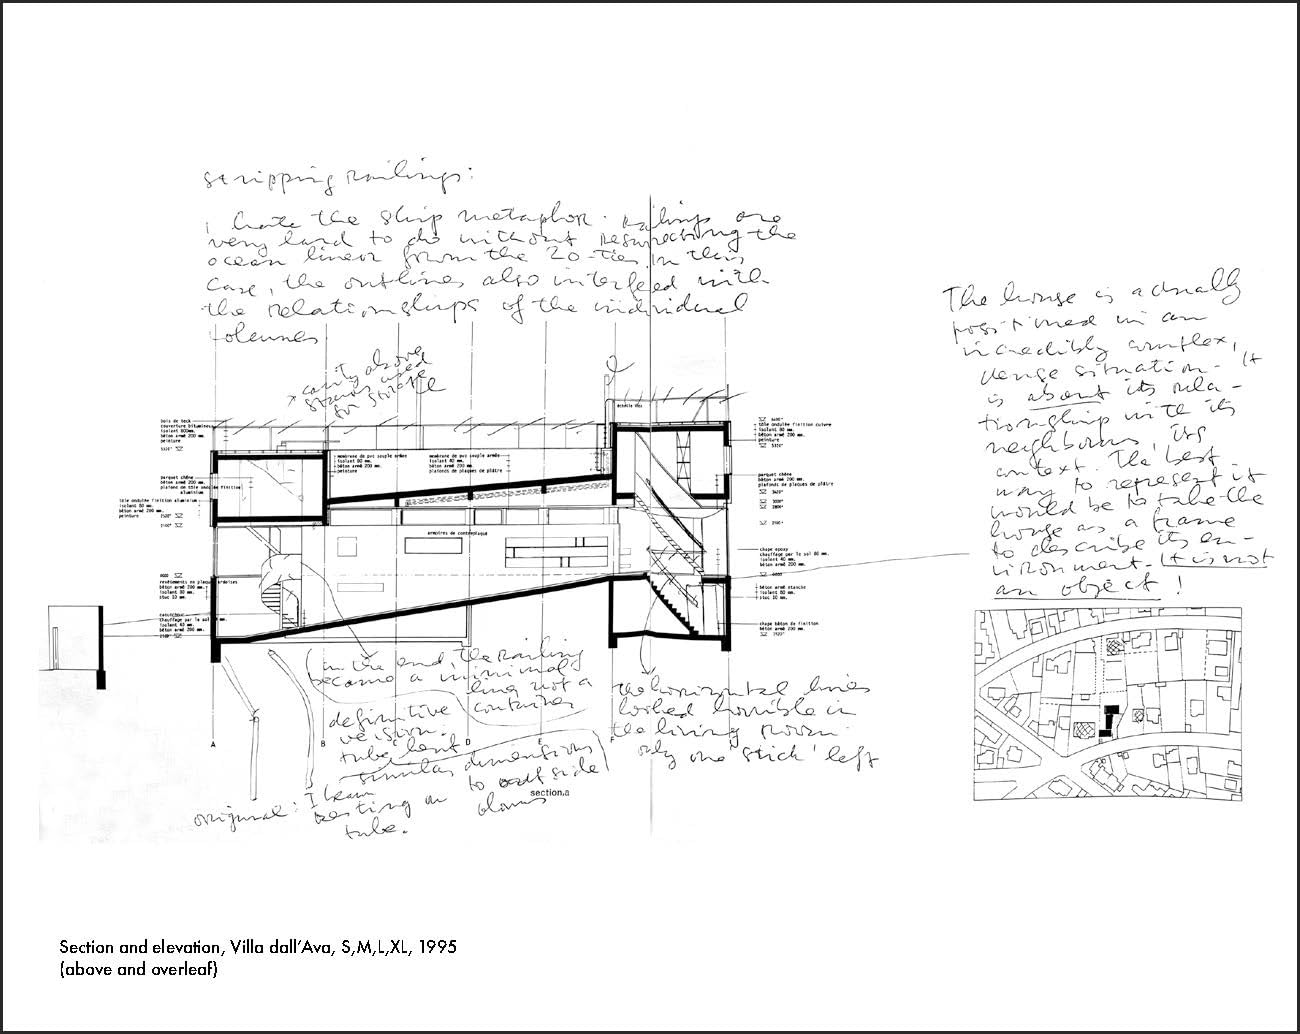 stripping railings:
I hate the ship metaphor. Railings are
very hard to do without resurrecting the
ocean liner from the 20-ties. In this
case, the outlines also interfeed with
the relationships of the individual
volumes
cavity above
stairs used
for storage
The house is actually
positioned in an
incredibly complex,
dense situation. It
is about its rela-
tionship with its
neighbours, its
context. The best
way to represent it
would be to take the
house as a frame
to describe its en-
vironment. It is not
an object!
bois de teck
couverture bitumineuse
isolant 800mm.
béton armé 200 mm.
peinture
parquet chêne
béton armé 200 mm.
plafond de tôle ondulée finition
aluminium
tôle ondulée finition aluminium
isolant 80 mm.
béton armé 200 mm.
peinture
membrane de pvc souple armée
isolant 80 mm.
béton armé 200 mm.
peinture
membrane de pvc souple armée
isolant 40 mm.
béton armé 200 mm.
plafonds de plaques de plâtre
armoires de contreplaqué
tôle ondulée finition cuivre
isolant 80 mm.
béton armé 200 mm.
peinture
parquet chêne
béton armé 200 mm.
plafonds de plaques de plâtre
chape epoxy
chauffage par le sol 80 mm.
isolant 40 mm.
béton armé 200 mm.
béton armé étanche
isolant 80 mm.
stuc 10 mm.
chape béton de finition
béton armé 200 mm.
revêtements en plaques ardoises
béton armé 200 mm.
isolant 80 mm.
stuc 10 mm.
caoutchouc
chauffage par le sol mm.
isolant 40 mm.
béton armé 200 mm.
in the end, the railing
became a minimal
line not a
container
definitive
version:
tube bent
similar dimensions
to outside
columns
original: I beam
resting on
tube.
the horizontal lines
looked horrible in
the living room
only one 'stick' left
A B C D E F
section.a
Section and elevation, Villa dall'Ava, S,M,L,XL, 1995
(above and overleaf)